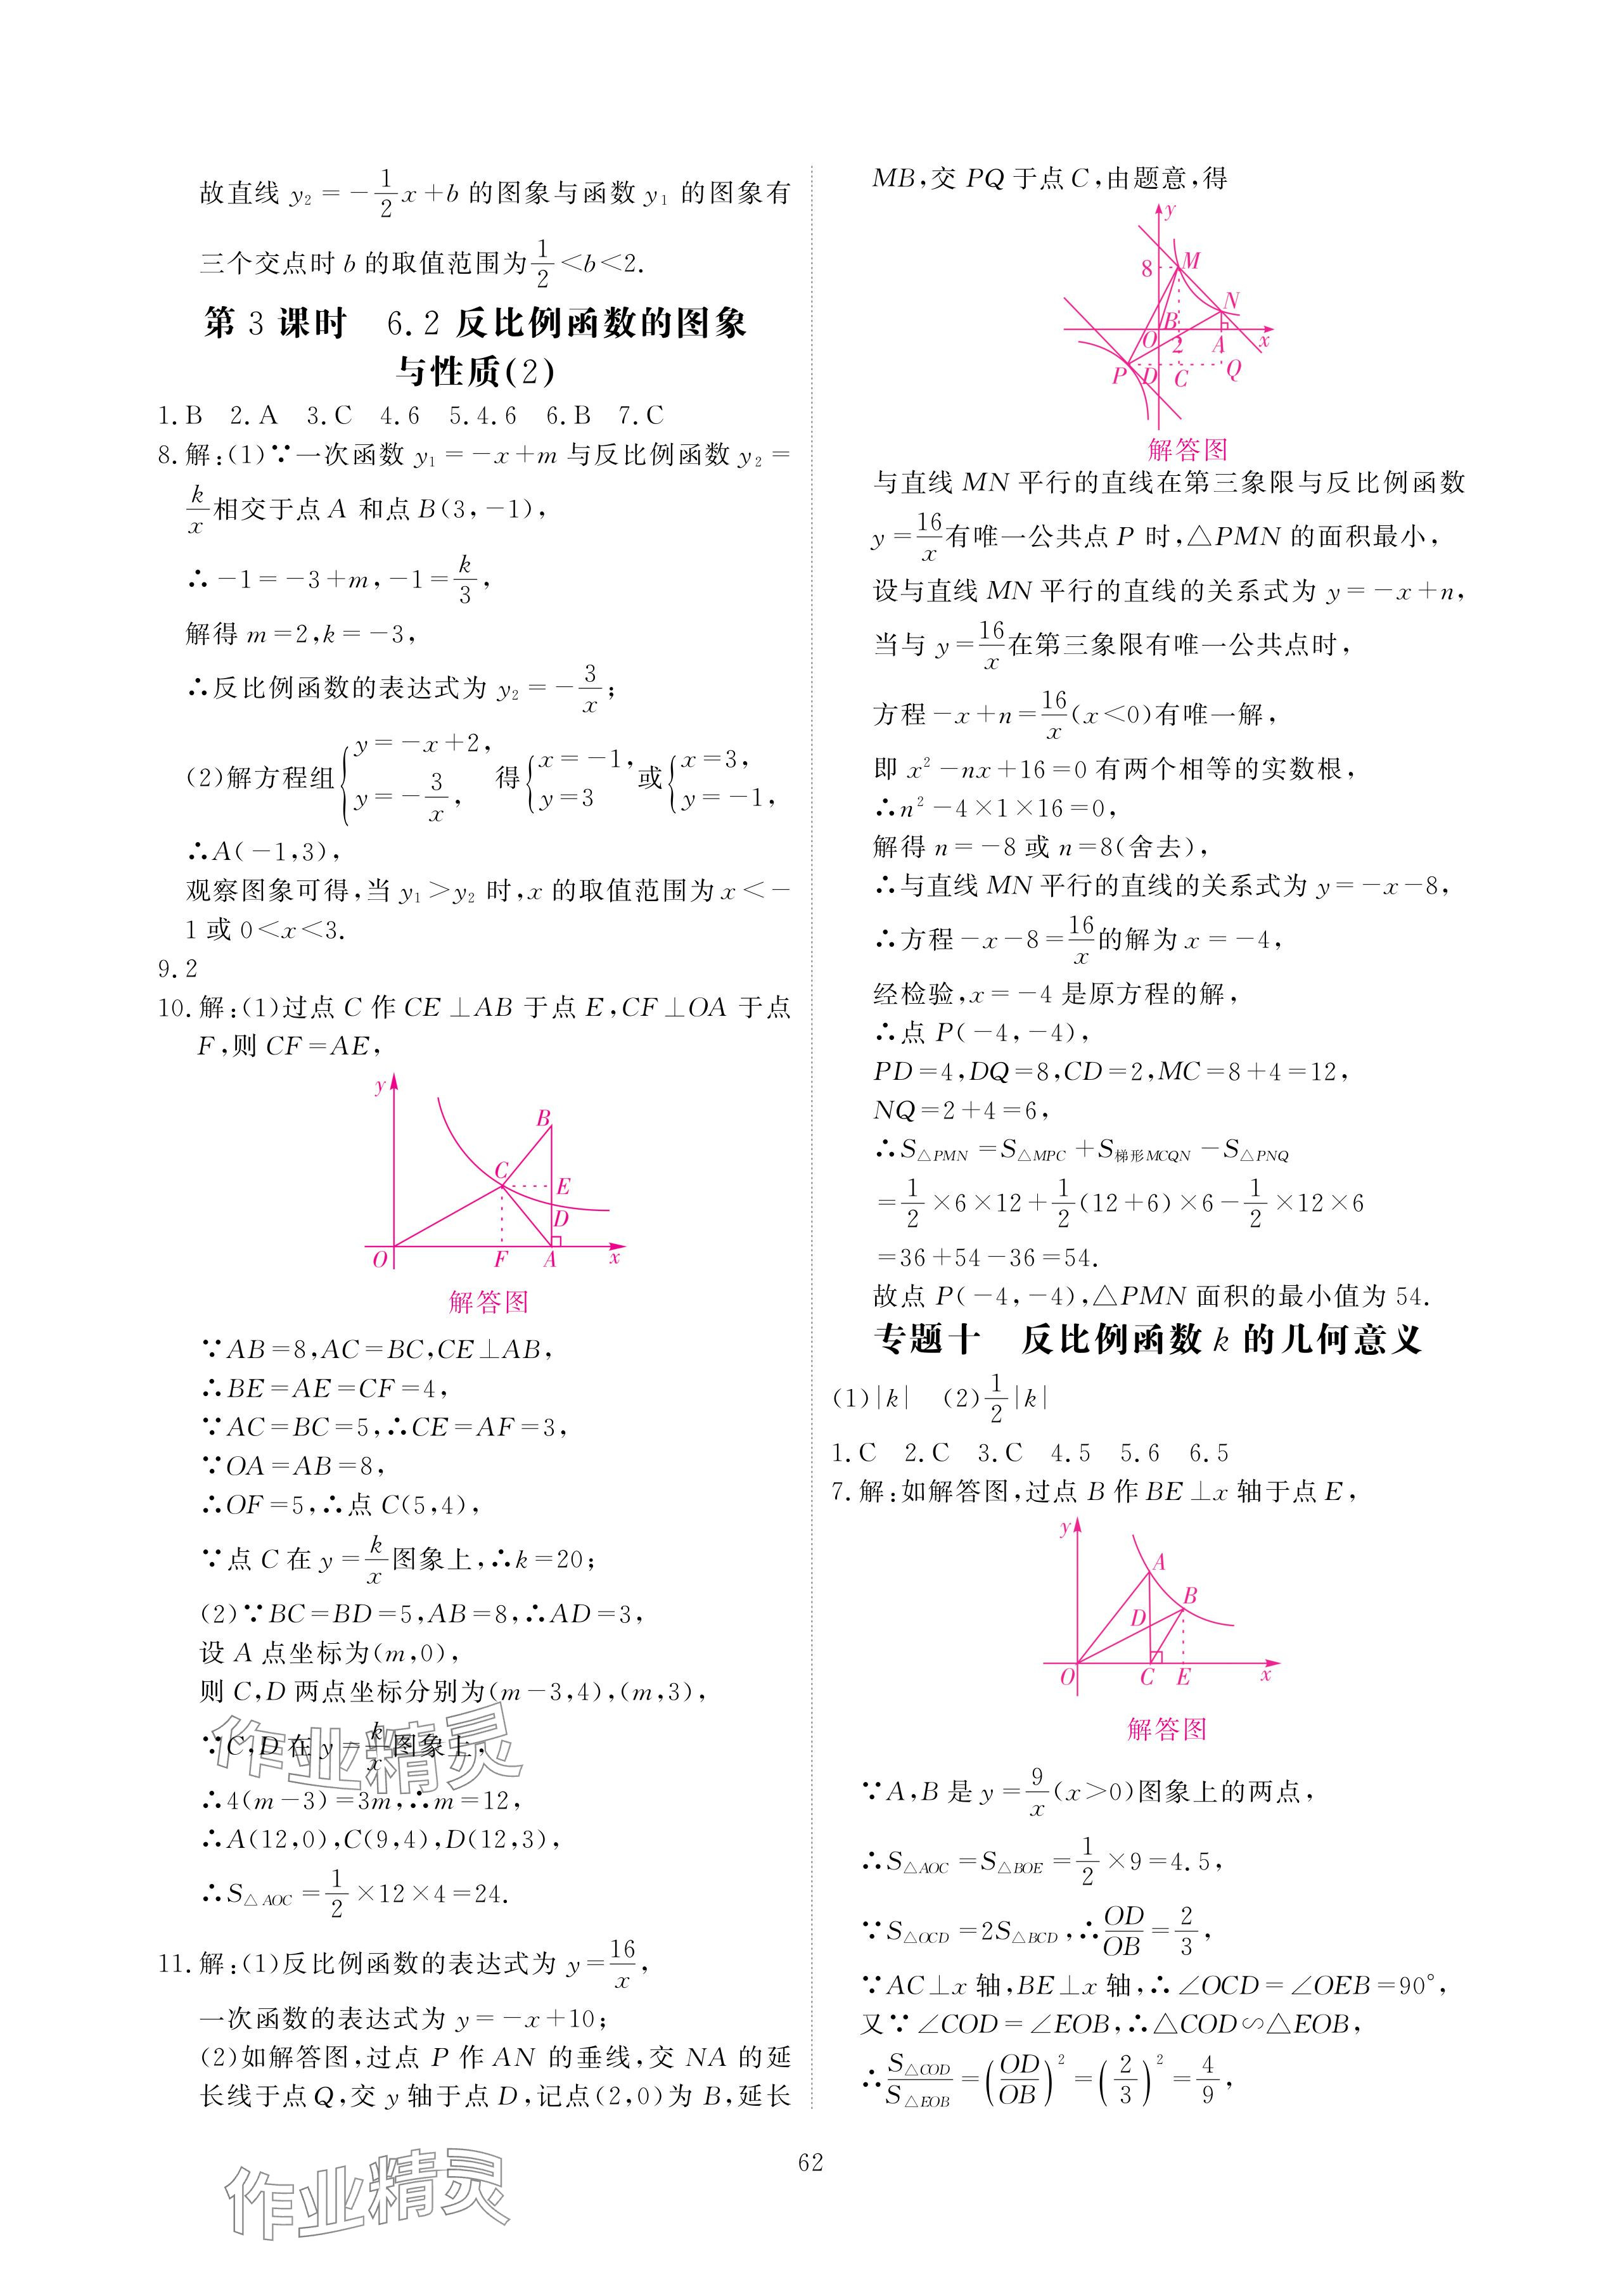 故直线 y₂=-1/2x+b 的图象与函数 y₁ 的图象有
三个交点时 b 的取值范围为1/2<b<2.
第 3 课时　6.2 反比例函数的图象
与性质(2)
1.B　2.A　3.C　4.6　5.4.6　6.B　7.C
8.解:(1)∵一次函数 y₁=-x+m 与反比例函数 y₂=
k/x相交于点 A 和点 B(3,-1),
∴-1=-3+m,-1=k/3,
解得 m=2,k=-3,
∴反比例函数的表达式为 y₂=-3/x;
(2)解方程组{y=-x+2, y=-3/x, 得{x=-1, y=3 或{x=3, y=-1,
∴A(-1,3),
观察图象可得,当 y₁>y₂ 时,x 的取值范围为 x<-
1 或 0<x<3.
9.2
10.解:(1)过点 C 作 CE⊥AB 于点 E,CF⊥OA 于点
F,则 CF=AE,
y
B
C
E
D
O F A x
解答图
∵AB=8,AC=BC,CE⊥AB,
∴BE=AE=CF=4,
∵AC=BC=5,∴CE=AF=3,
∵OA=AB=8,
∴OF=5,∴点 C(5,4),
∵点 C 在 y=k/x图象上,∴k=20;
(2)∵BC=BD=5,AB=8,∴AD=3,
设 A 点坐标为(m,0),
则 C,D 两点坐标分别为(m-3,4),(m,3),
∵C,D 在 y=k/x图象上,
∴4(m-3)=3m,∴m=12,
∴A(12,0),C(9,4),D(12,3),
∴S△AOC=1/2×12×4=24.
11.解:(1)反比例函数的表达式为 y=16/x,
一次函数的表达式为 y=-x+10;
(2)如解答图,过点 P 作 AN 的垂线,交 NA 的延
长线于点 Q,交 y 轴于点 D,记点(2,0)为 B,延长
MB,交 PQ 于点 C,由题意,得
y
8 M
N
B
O 2 A x
P D C Q
解答图
与直线 MN 平行的直线在第三象限与反比例函数
y=16/x有唯一公共点 P 时,△PMN 的面积最小,
设与直线 MN 平行的直线的关系式为 y=-x+n,
当与 y=16/x在第三象限有唯一公共点时,
方程-x+n=16/x(x<0)有唯一解,
即 x²-nx+16=0 有两个相等的实数根,
∴n²-4×1×16=0,
解得 n=-8 或 n=8(舍去),
∴与直线 MN 平行的直线的关系式为 y=-x-8,
∴方程-x-8=16/x的解为 x=-4,
经检验,x=-4 是原方程的解,
∴点 P(-4,-4),
PD=4,DQ=8,CD=2,MC=8+4=12,
NQ=2+4=6,
∴S△PMN=S△MPC+S梯形MCQN-S△PNQ
=1/2×6×12+1/2(12+6)×6-1/2×12×6
=36+54-36=54.
故点 P(-4,-4),△PMN 面积的最小值为 54.
专题十　反比例函数 k 的几何意义
(1)|k|　(2)1/2|k|
1.C　2.C　3.C　4.5　5.6　6.5
7.解:如解答图,过点 B 作 BE⊥x 轴于点 E,
y
A
B
D
O C E x
解答图
∵A,B 是 y=9/x(x>0)图象上的两点,
∴S△AOC=S△BOE=1/2×9=4.5,
∵S△OCD=2S△BCD,∴OD/OB=2/3,
∵AC⊥x 轴,BE⊥x 轴,∴∠OCD=∠OEB=90°,
又∵∠COD=∠EOB,∴△COD∽△EOB,
∴S△COD/S△EOB=(OD/OB)²=(2/3)²=4/9,
62
作业精灵
作业精灵